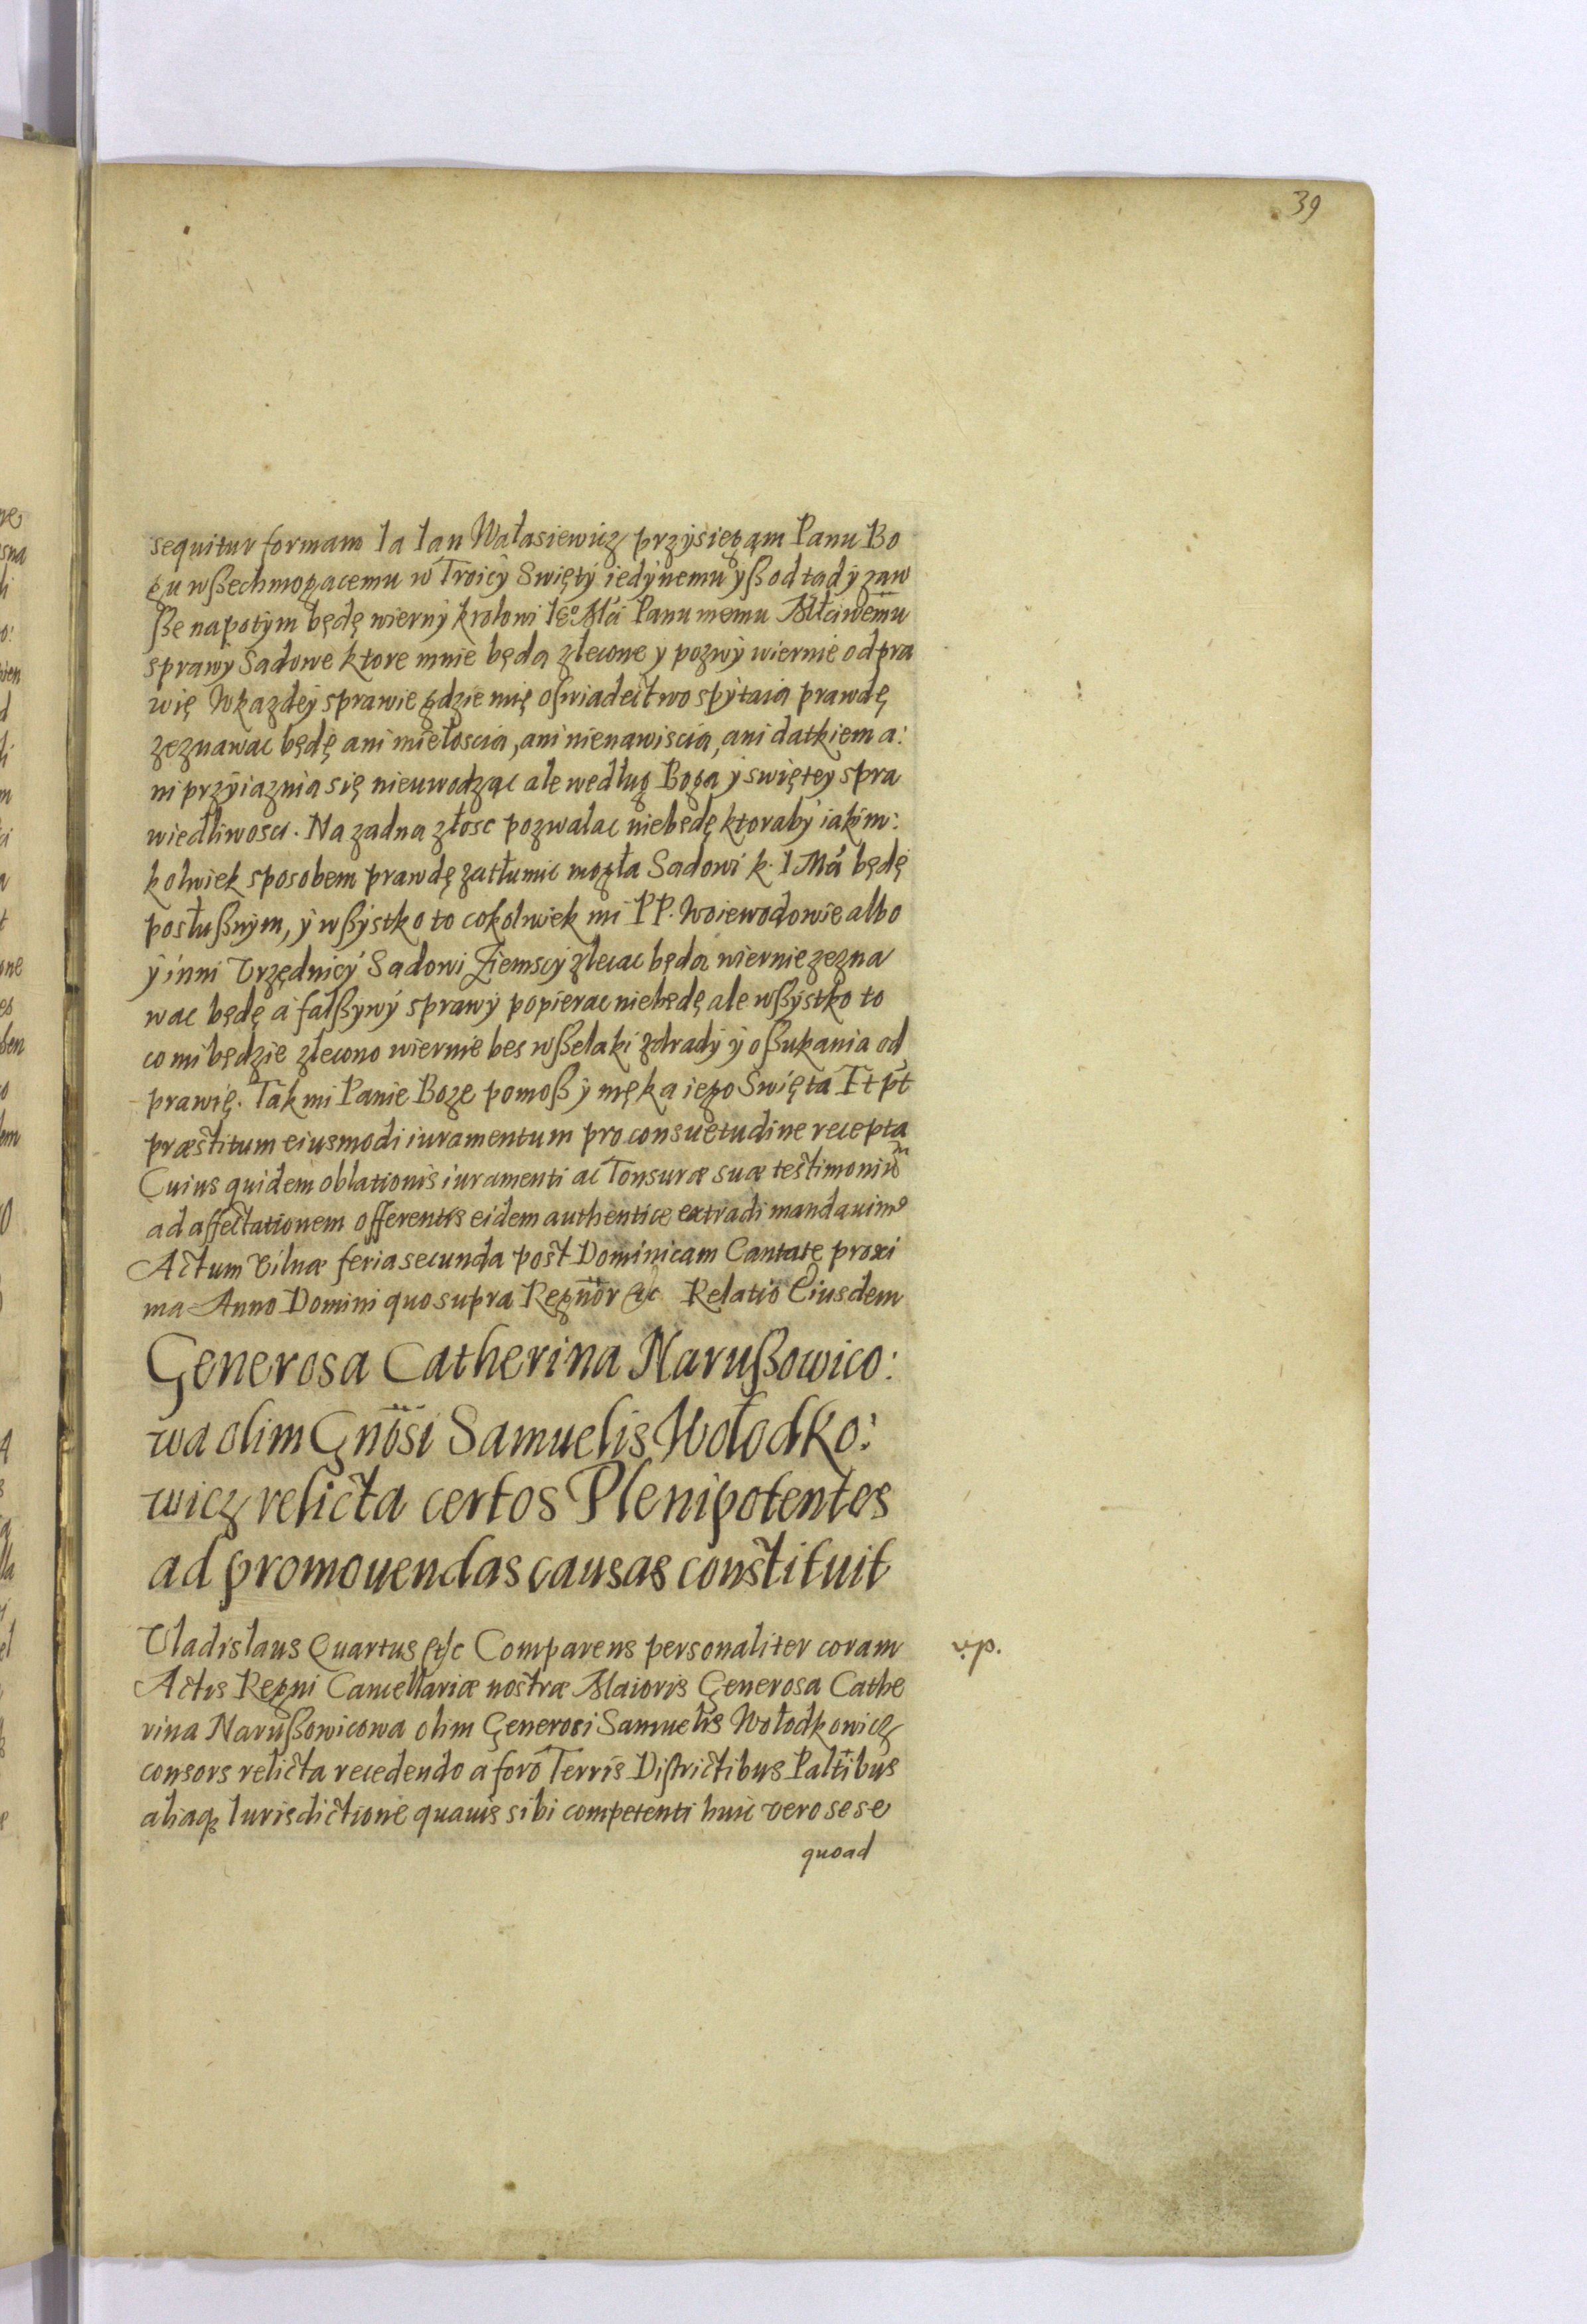 39
sequitur formam Ia Ian Wałasiewicz przysiegąm Panu Bo
gu wßechmogacemu w Troicy Swięty iedynemu yß od tądy zaw
ße napotym będę wierny krolowi Ie° Mći Panu memu Młciwemu
sprawy Sadowe ktore mnie będa zlecone y pozwy wiernie odpra
wię Wkazdey sprawie gdzie mię oswiadectwo spytaia prawdę
zeznawac będę ani miełoscia, ani nienawiscia, ani datkiem a:
ni przyiaznia się nieuwodząc ale według Boga y swiętey spra
wiedliwosci. Na zadna złosc pozwalac niebędę ktoraby iakim:
kolwiek sposobem prawdę zatłumic mogła Sadowi k. I Mći będę
posłußnym, y wßystko to cokolwiek mi PP. Woiewodowie albo
y inni Vrzędnicy Sadowi Ziemscy zlecac będa wiernie zezna
wac będę a falßywy sprawy popierac niebędę ale wßystko to
co mi będzie zlecono wiernie bes wßelaki zdrady y oßukania od
prawię. Tak mi Panie Boze pomoß y męka iego Swięta Et pt
præstitum eiusmodi iuramentum pro consuetudine recepta
Cuius quidem oblationis iuramenti ac Tonsuræ suæ testimoniūm
ad affectationem offerentis eidem authentice extradi mandauim9
Actum Vilnæ feria secunda post Dominicam Cantate proxi
ma Anno Domini quo supra Regnor &c Relatio Eiusdem
Generosa Catherina Narußowico:
wa olim Gnosi Samuelis Wołodko:
wicz relicta certos Plenipotentes
ad promouendas causas constituit
Vladislaus Quartus &c Comparens personaliter coram
v.p.
Actis Regni Cancellariæ nostræ Maioris Generosa Cathe
rina Narußowicowa olim Generosi Samuelis Wołodkowicz
consors relicta recedendo a foro Terris Districtibus Paltibus
aliaq3 Iurisdictione quauis sibi competenti huic vero sese
quoad